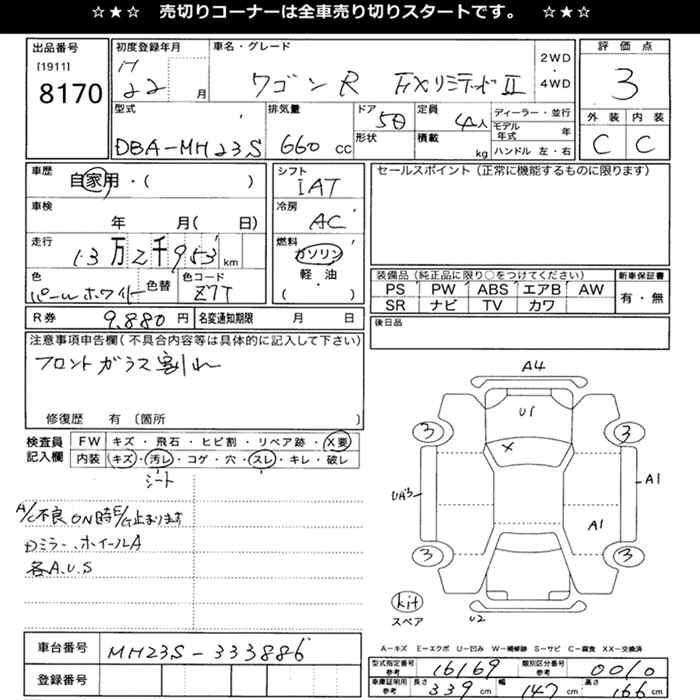 ☆★☆ 売切りコーナーは全車売り切りスタートです。 ☆★☆
出品番号
[1911]
8170
初度登録年月
H
22 月
車名・グレード
ワゴンR FXリミテッドII
2WD
・
4WD
評価点
3
外装 内装
C C
型式
DBA-MH23S
排気量
660 cc
ドア
5D
形状
定員
4人
積載
kg
ディーラー・並行
モデル年式 年
ハンドル 左・右
車歴
自家用・( )
車検
年 月( 日)
走行
13万2千953 km
色
パールホワイト
色替
色コード
Z7T
シフト
IAT
冷房
AC
燃料
ガソリン
軽・油
( )
セールスポイント(正常に機能するものに限ります)
装備品(純正品に限り○をつけてください)
PS PW ABS エアB AW
SR ナビ TV カワ
新車保証書
有・無
R券 9,880 円
名変通知期限 月 日
後日品
注意事項申告欄(不具合内容等は具体的に記入して下さい)
フロントガラス割れ
修復歴 有 〔箇所 〕
検査員
記入欄
FW キズ・飛石・ヒビ割・リペア跡・X要
内装 キズ・汚レ・コゲ・穴・スレ・キレ・破レ
シート
A/C不良 ON時E/G止まります
Dミラー、ホイールA
各A.U.S
A4
U1
X
3
3
UA3
A1
A1
3
3
kit
スペア
U2
車台番号 MH23S-333886
登録番号
A-キズ E-エクボ U-凹み W-補修跡 S-サビ C-腐食 XX-交換済
型式指定番号
参考
16169
類別区分番号
参考
0010
車庫証明用
参考
長さ 339 cm 幅 147 cm 高さ 166 cm